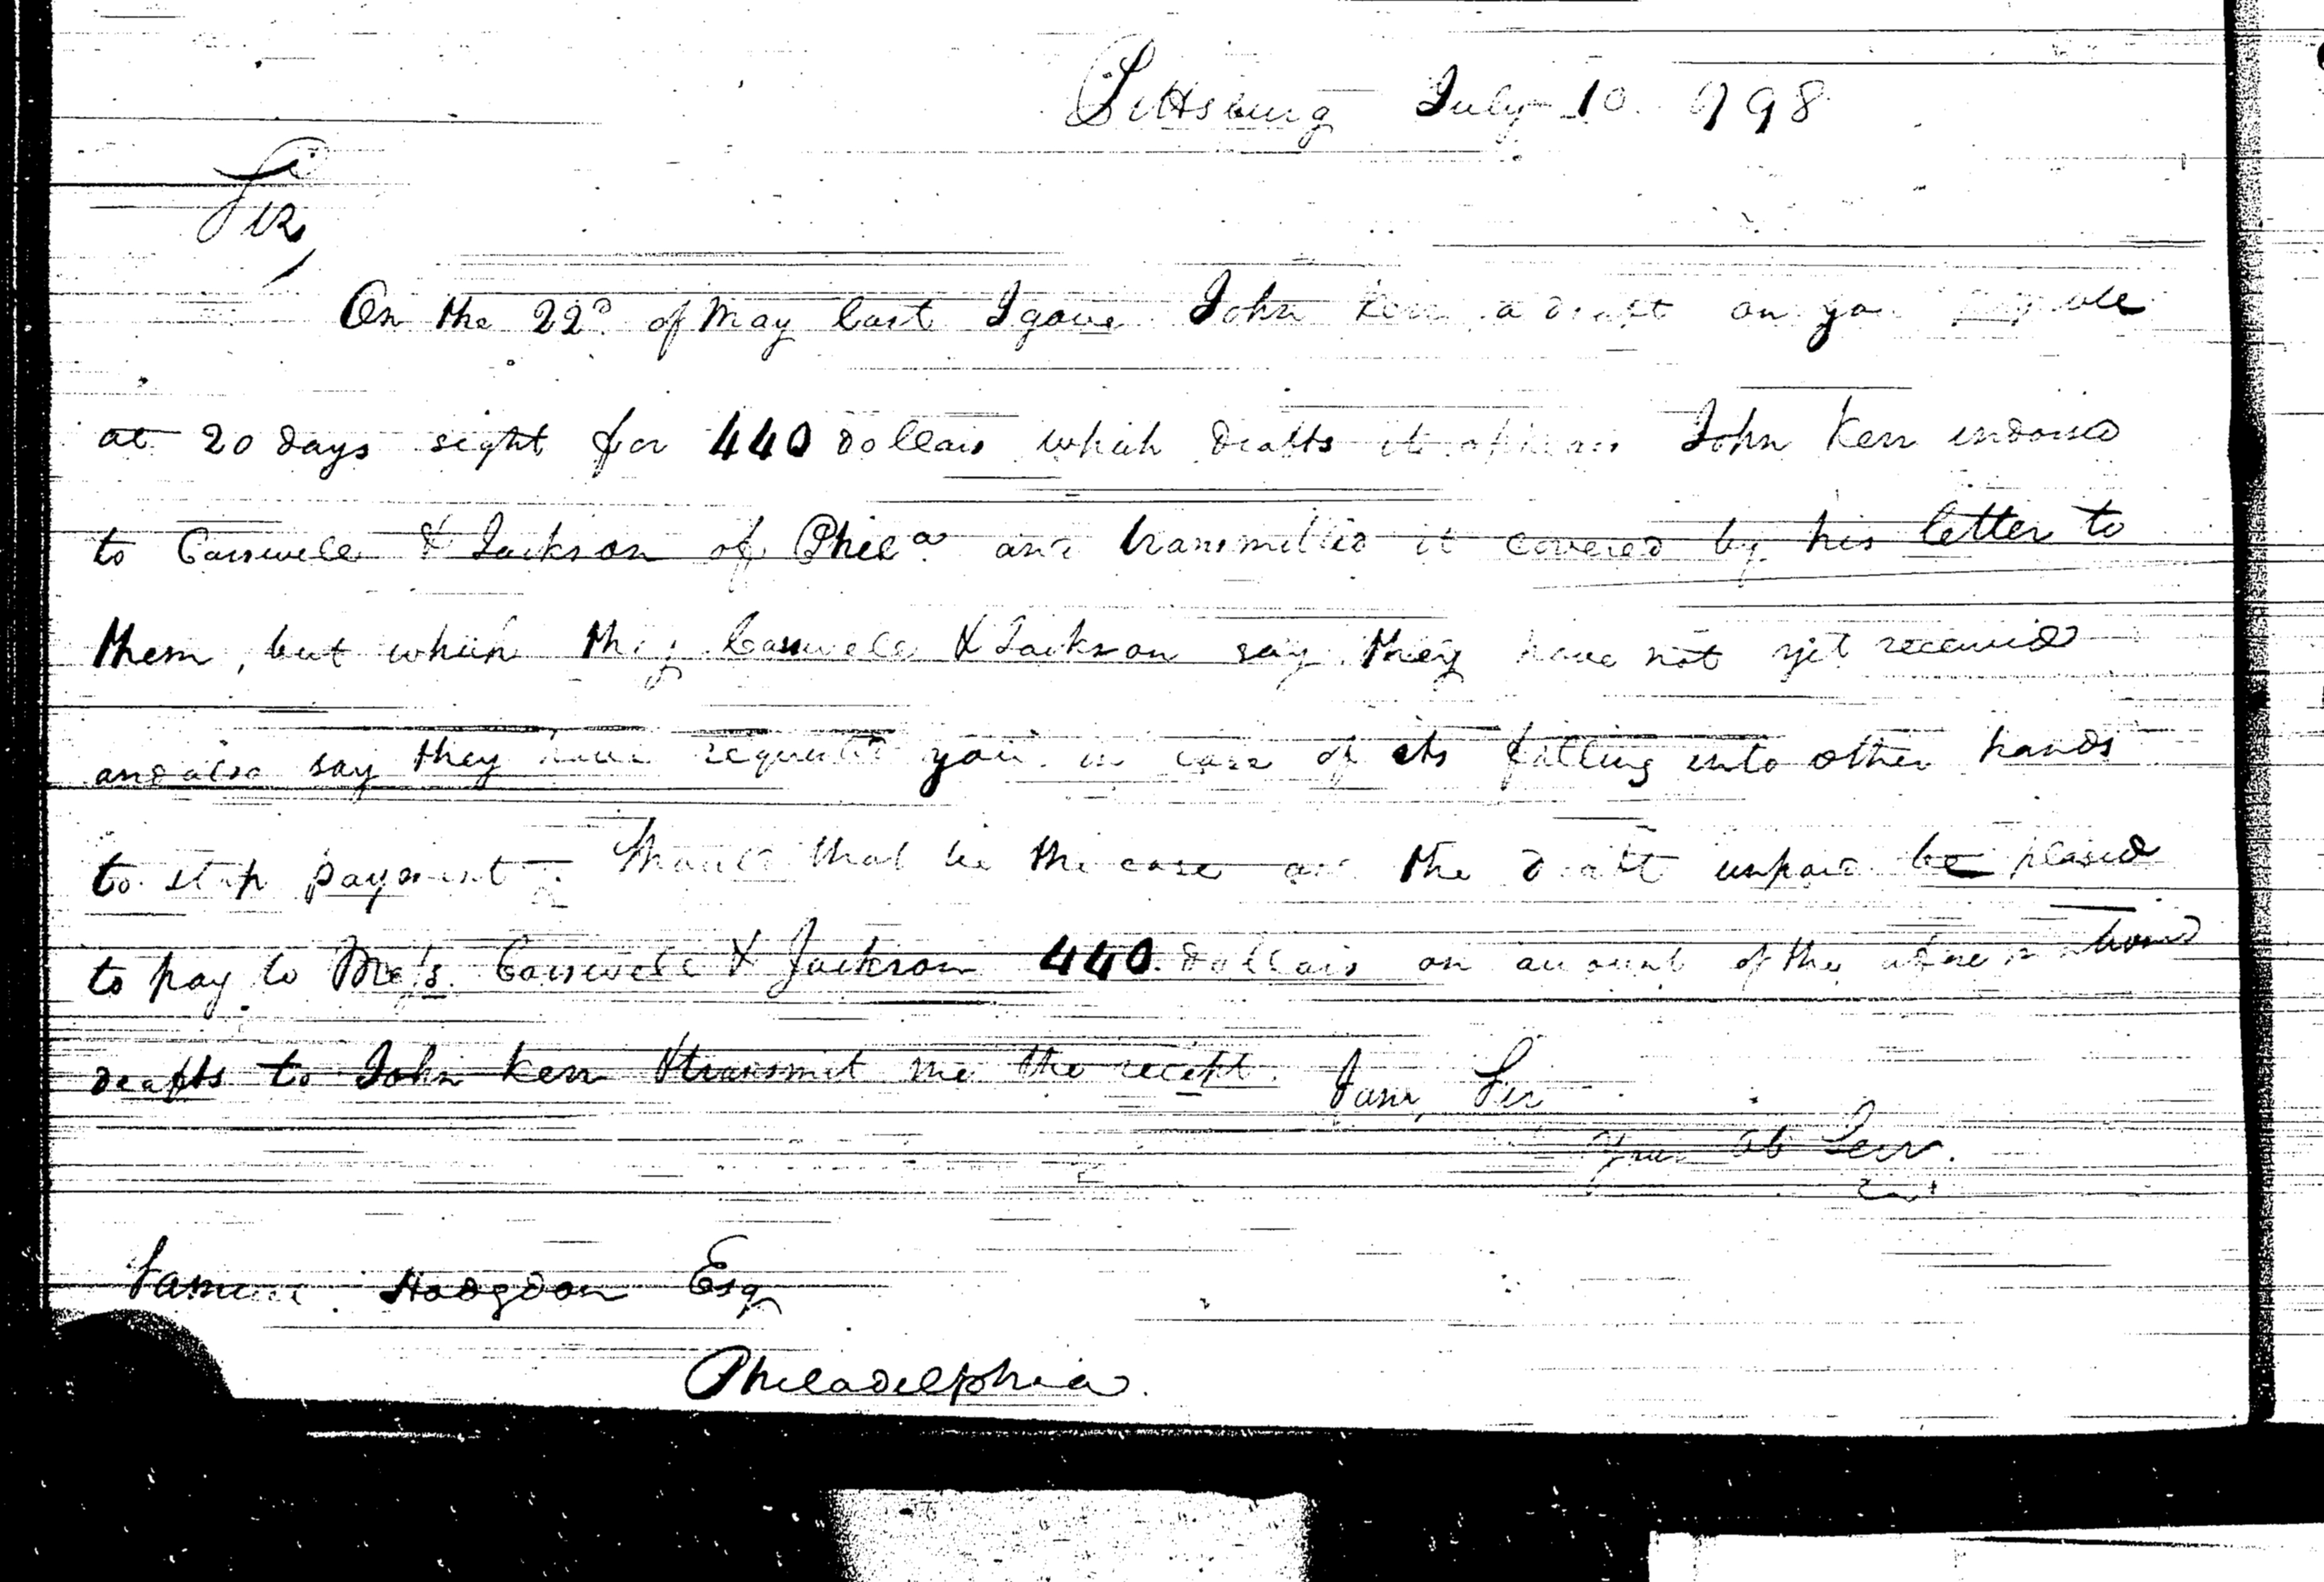 Pittsburg July 10. 1798
Sir,
On the 22d. of May last I gave John Kerr a draft on you payable
at 20 days sight for 440 dollars which drafts it appears John Kerr indorsed
to Carswell & Jackson of Phila. and transmitted it covered by his letter to
them, but which they Carswell & Jackson say they have not yet received
and also say they have requested you in case of its falling into other hands
to stop payment - Should that be the case and the draft unpaid be pleased
to pay to Mess. Carswell & Jackson 440 dollars on account of the aforementioned
drafts to John Kerr & transmit me the recept. I am, Sir
Your Ob Serv.
Samuel Hodgdon Esq
Philadelphia.